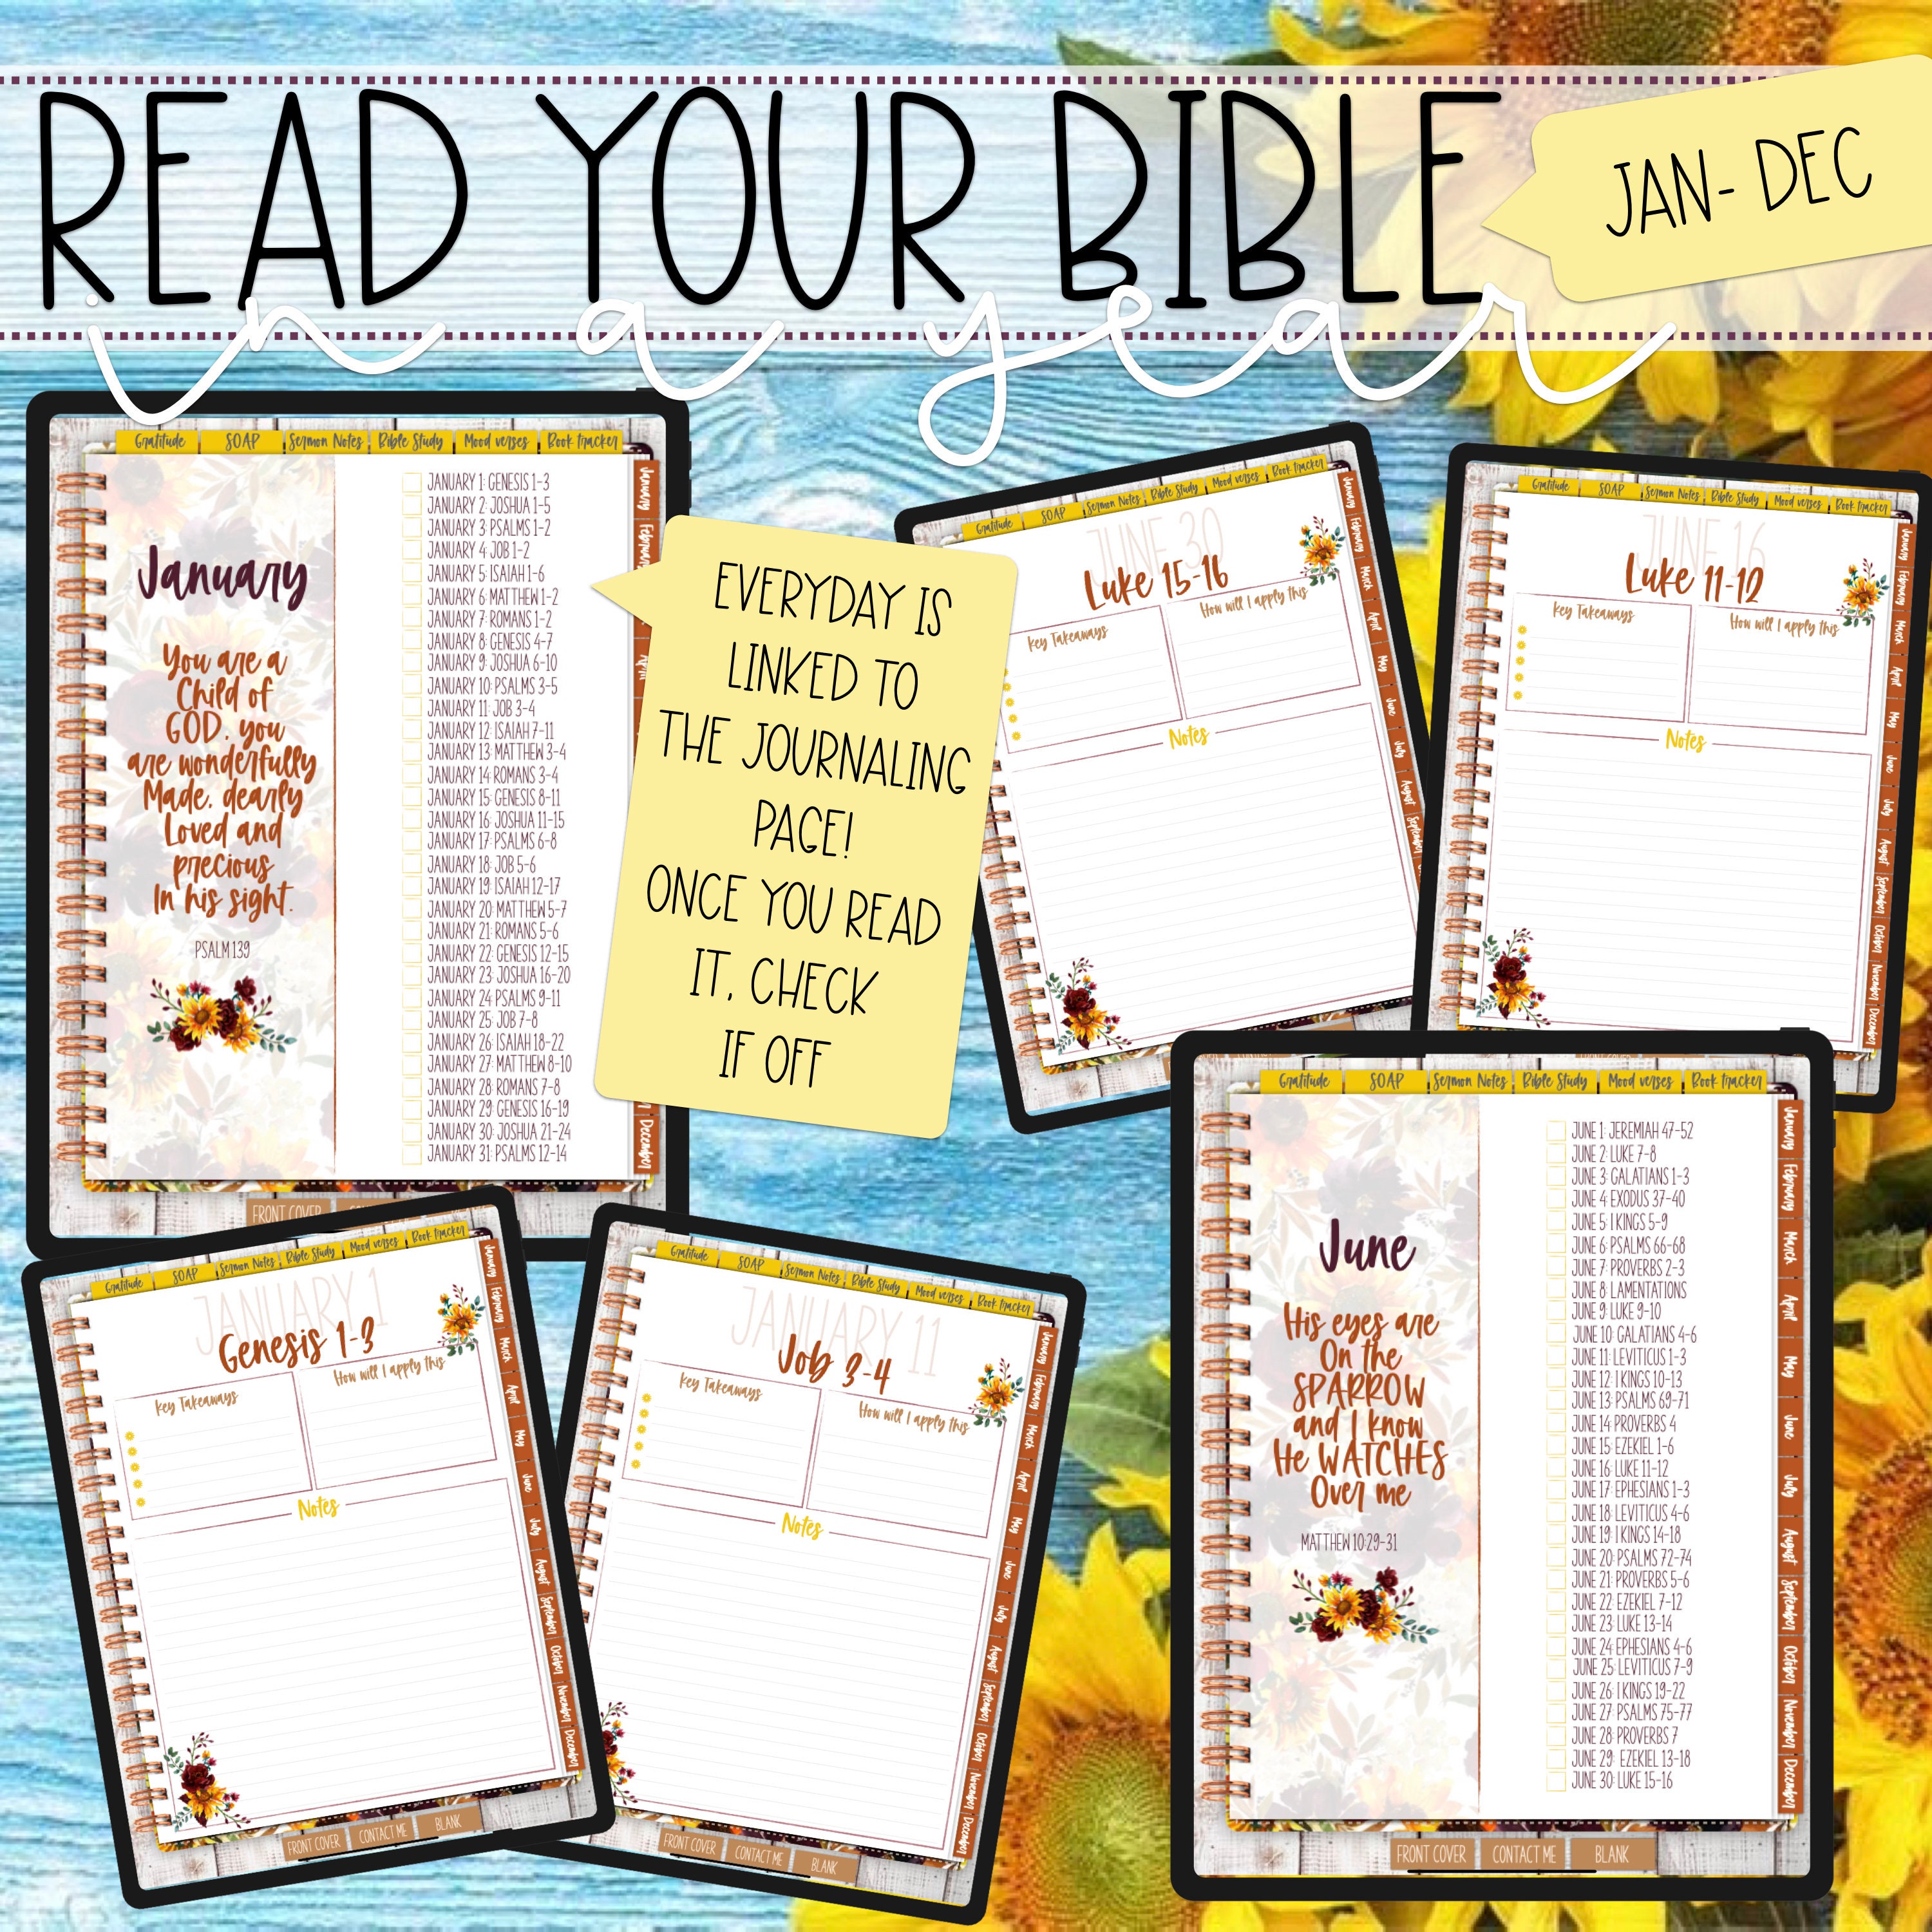 READ YOUR BIBLE
in a year
JAN- DEC
Gratitude SOAP Sermon Notes Bible Study Mood verses Book tracker
January
You are a
Child of
GOD, you
are wonderfully
Made, dearly
Loved and
precious
In his sight.
PSALM 139
JANUARY 1: GENESIS 1-3
JANUARY 2: JOSHUA 1-5
JANUARY 3: PSALMS 1-2
JANUARY 4: JOB 1-2
JANUARY 5: ISAIAH 1-6
JANUARY 6: MATTHEW 1-2
JANUARY 7: ROMANS 1-2
JANUARY 8: GENESIS 4-7
JANUARY 9: JOSHUA 6-10
JANUARY 10: PSALMS 3-5
JANUARY 11: JOB 3-4
JANUARY 12: ISAIAH 7-11
JANUARY 13: MATTHEW 3-4
JANUARY 14: ROMANS 3-4
JANUARY 15: GENESIS 8-11
JANUARY 16: JOSHUA 11-15
JANUARY 17: PSALMS 6-8
JANUARY 18: JOB 5-6
JANUARY 19: ISAIAH 12-17
JANUARY 20: MATTHEW 5-7
JANUARY 21: ROMANS 5-6
JANUARY 22: GENESIS 12-15
JANUARY 23: JOSHUA 16-20
JANUARY 24: PSALMS 9-11
JANUARY 25: JOB 7-8
JANUARY 26: ISAIAH 18-22
JANUARY 27: MATTHEW 8-10
JANUARY 28: ROMANS 7-8
JANUARY 29: GENESIS 16-19
JANUARY 30: JOSHUA 21-24
JANUARY 31: PSALMS 12-14
January
December
FRONT COVER
EVERYDAY IS
LINKED TO
THE JOURNALING
PAGE!
ONCE YOU READ
IT, CHECK
IF OFF
Gratitude SOAP Sermon Notes Bible Study Mood verses Book tracker
JUNE 30
Luke 15-16
Key Takeaways
How will I apply this
Notes
January
February
March
April
May
June
July
August
September
Gratitude SOAP Sermon Notes Bible Study Mood verses Book tracker
JUNE 16
Luke 11-12
Key Takeaways
How will I apply this
Notes
January
February
March
April
May
June
July
August
September
October
November
December
Gratitude SOAP Sermon Notes Bible Study Mood verses Book tracker
JANUARY 1
Genesis 1-3
Key Takeaways
How will I apply this
Notes
January
February
March
April
May
June
July
August
September
October
November
December
FRONT COVER CONTACT ME BLANK
Gratitude SOAP Sermon Notes Bible Study Mood verses Book tracker
JANUARY 11
Job 3-4
Key Takeaways
How will I apply this
Notes
January
February
March
April
May
June
July
August
September
October
November
December
FRONT COVER CONTACT ME BLANK
Gratitude SOAP Sermon Notes Bible Study Mood verses Book tracker
June
His eyes are
On the
SPARROW
and I know
He WATCHES
Over me
MATTHEW 10:29-31
JUNE 1: JEREMIAH 47-52
JUNE 2: LUKE 7-8
JUNE 3: GALATIANS 1-3
JUNE 4: EXODUS 37-40
JUNE 5: I KINGS 5-9
JUNE 6: PSALMS 66-68
JUNE 7: PROVERBS 2-3
JUNE 8: LAMENTATIONS
JUNE 9: LUKE 9-10
JUNE 10: GALATIANS 4-6
JUNE 11: LEVITICUS 1-3
JUNE 12: I KINGS 10-13
JUNE 13: PSALMS 69-71
JUNE 14: PROVERBS 4
JUNE 15: EZEKIEL 1-6
JUNE 16: LUKE 11-12
JUNE 17: EPHESIANS 1-3
JUNE 18: LEVITICUS 4-6
JUNE 19: I KINGS 14-18
JUNE 20: PSALMS 72-74
JUNE 21: PROVERBS 5-6
JUNE 22: EZEKIEL 7-12
JUNE 23: LUKE 13-14
JUNE 24: EPHESIANS 4-6
JUNE 25: LEVITICUS 7-9
JUNE 26: I KINGS 19-22
JUNE 27: PSALMS 75-77
JUNE 28: PROVERBS 7
JUNE 29: EZEKIEL 13-18
JUNE 30: LUKE 15-16
January
February
March
April
May
June
July
August
September
October
November
December
FRONT COVER CONTACT ME BLANK